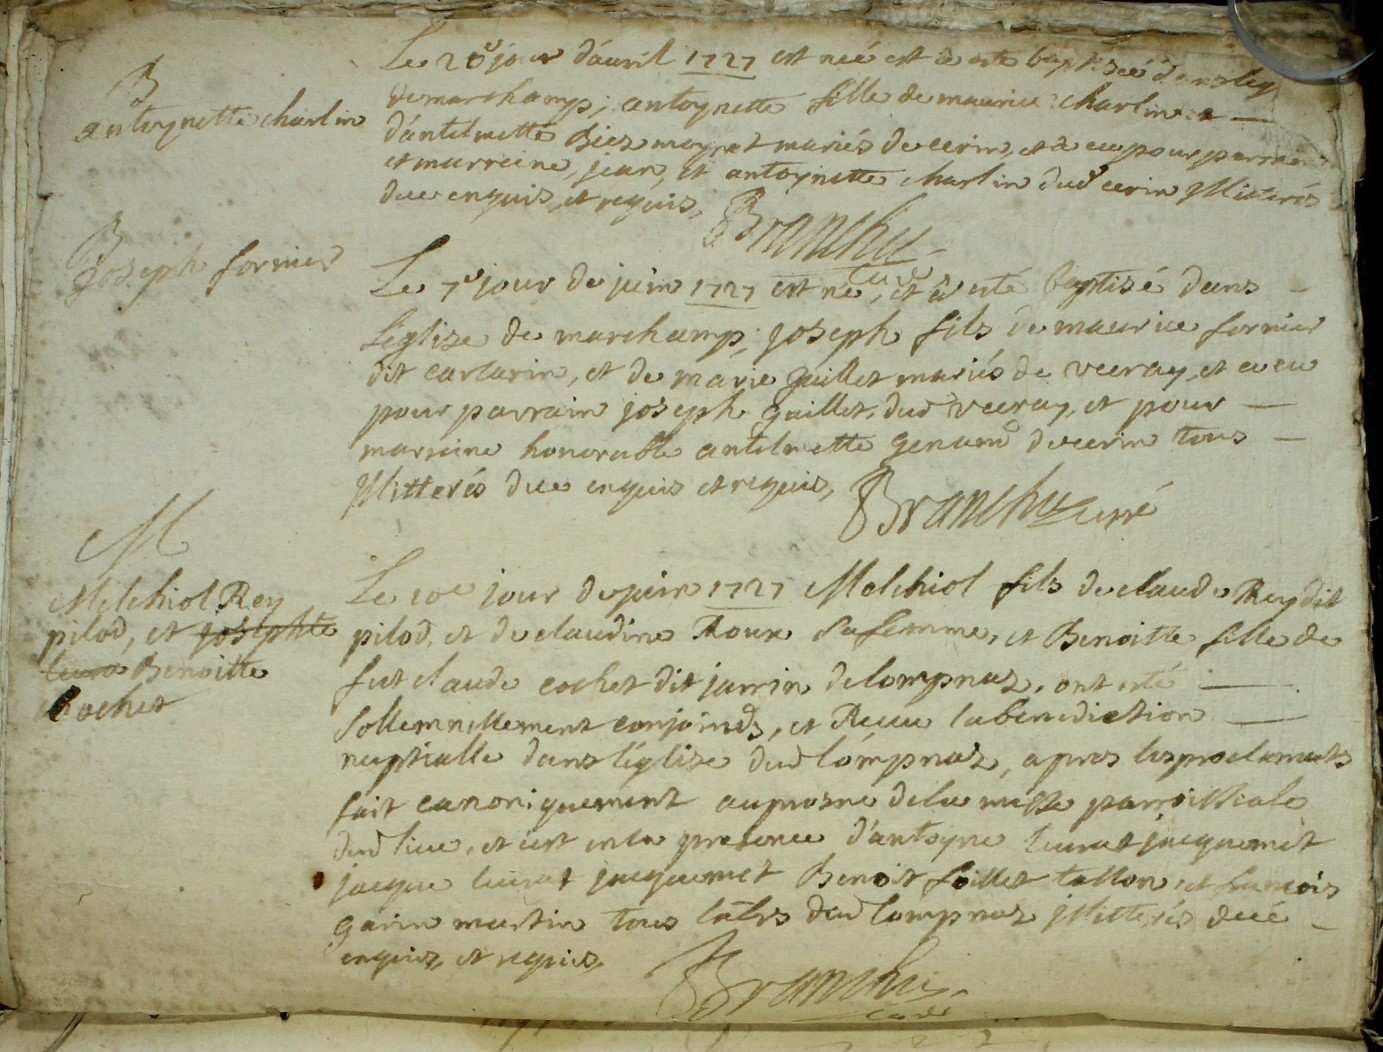 B
antoynette charlin
Le 20e jour d'auril 1727 est neé est a esté baptiseé dans leg
de marchamp; antoynette fille de maurice charlin et
d'antelmette Biez moynet mariés de cerin, et a eu pour parrain
et marreine, jean, et antoynette charlin dud cerin Illiterés
duë enquis, et requis, Branchu
curé
B
Joseph fornier
Le 7e jour de juin 1727 est né, et a esté baptisé dans
l'église de marchamp, joseph fils de maurice fornier
dit carlarin, et de marie guillet mariés de veeray, et a eu
pour parrain joseph guillet, dud veeray, et pour
marreine honorable antelmette genam decerin tous
Illitterés due enquis et requis, Branchu curé
M
Melchiol Rey
pilod, et josephte
leurat Benoitte
Cochet
Le 10e jour de juin 1727 Melchiol fils de claude Rey dit
pilod, et de claudine Roux sa femme, et Benoitte fille de
feit claude cochet dit jarrin de lompnaz, ont esté
sollemnellement conjoinds, et Receu la benediction
nuptialle dans l'église dud lompnaz, apres les proclamats
fait canoniquement au prosne de la messe parroissiale
dud lieu, et c'est en la presence d'antoyne leurat jacquemet
jacque leurat jacquemet Benoit foillet tallon, et francois
garin martin tous labrs dud lompnaz Illitterés dué
enquis, et requis, Branchu
curé